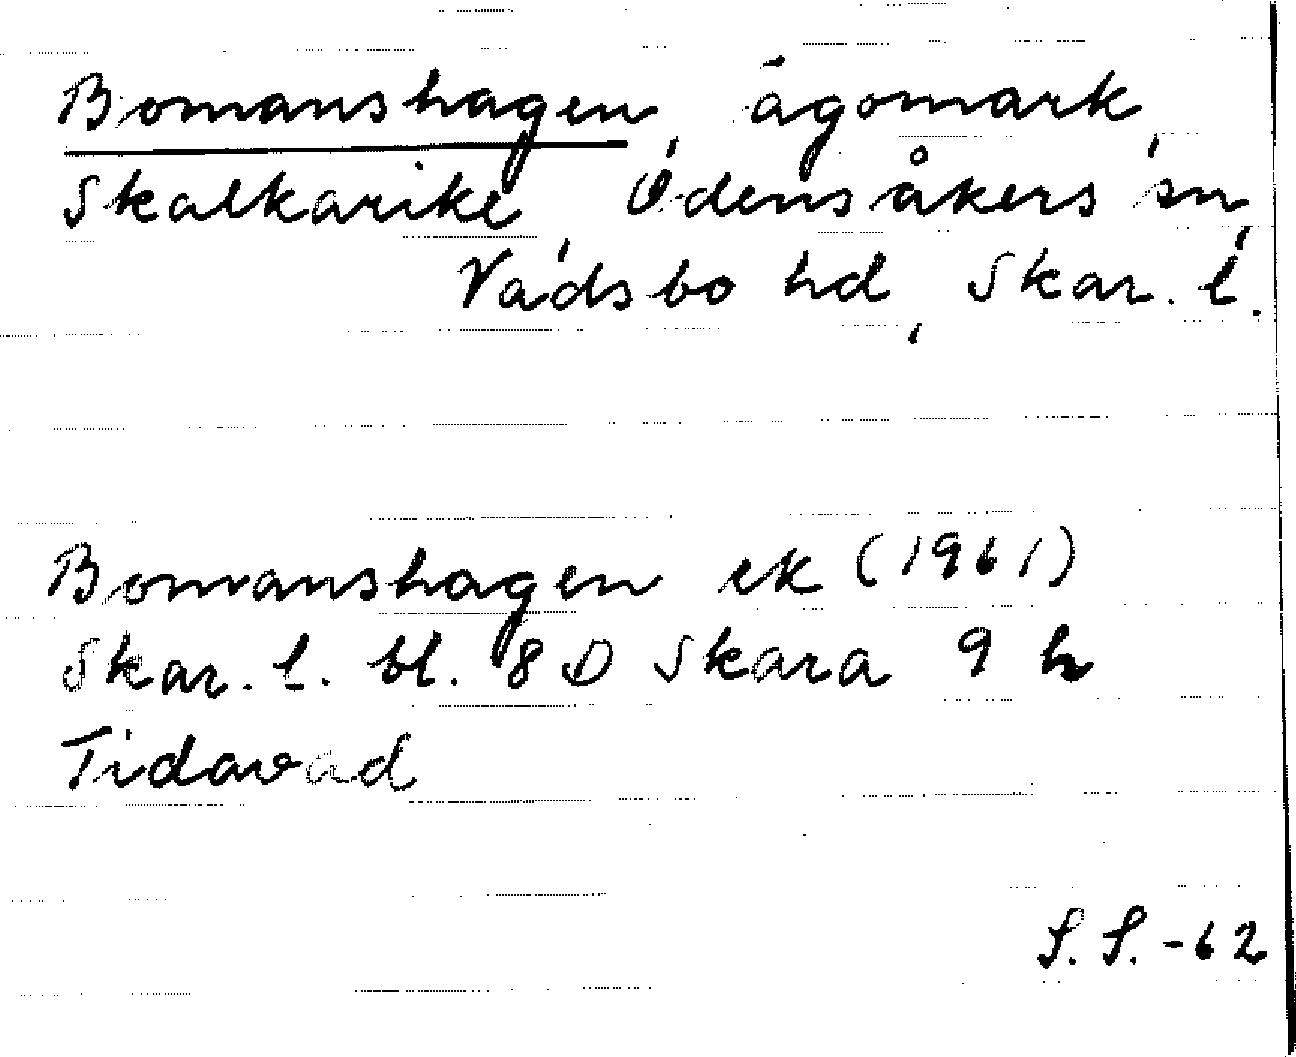 Bomanshagen, ägomark,
Skalkarike, Odensåkers sn,
Vadsbo hd, Skar. l.
Bomanshagen ek (1961)
Skar. l. bl. 8 D Skara 9 h
Tidavad
S. S. -62